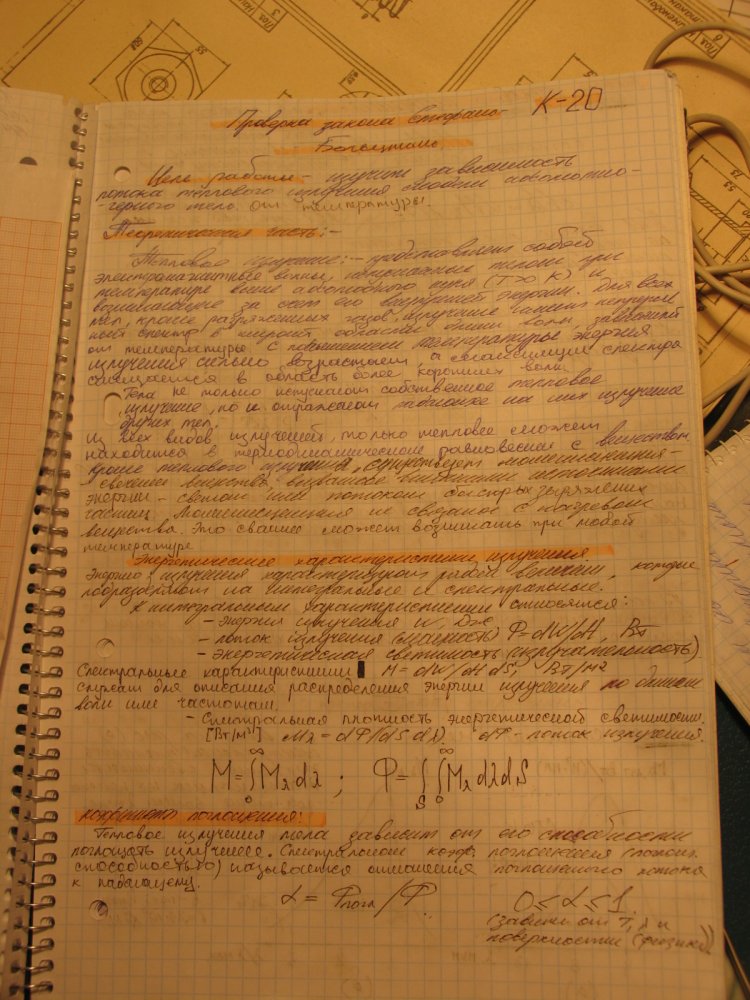 К-20
Проверка закона Стефана-
Больцмана
Цель работы:- изучить зависимость
потока теплового излучения модели абсолютно-
-черного тела от температуры.
Теоретическая часть:-
Тепловое излучение:- представляет собой
электромагнитные волны, испускаемые телами при
температуре выше абсолютного нуля (T>0 K) и
возникающее за счет его внутренней энергии. Для всех
тел, кроме разряженных газов излучение имеет непрерыв
ный спектр в широкой области длин волн, зависящий
от температуры. С повышением температуры энергия
излучения сильно возрастает, а спектра
смещается в область более коротких волн.
Тела не только испускают собственное тепловое
излучение, но и отражают падающее на них излучение
других тел.
Из всех видов излучений, только тепловое может
находится в термодинамическом равновесии с веществом,
кроме теплового излучения, существует люминесценция-
-свечение вещества, вызванное внешними источниками
энергии - светом или потоком быстрых заряженных
частиц. Люминесценция не связанно с нагревом
вещества. Это свечение может возникать при любой
температуре
Энергетические характеристики излучения
Энергию излучения характеризуют рядом величин, которые
подразделяют на интегральные и спектральные.
К интегральным характеристикам относятся:
- энергия излучения W, Дж
- поток излучения (мощность) Ф=dW/dt, Вт
- энергетическая светимость (излучательность)
Спектральные характеристики M=dW/dt dS, Вт/м²
служат для описания распределения энергии излучения по длинам
волн или частотам.
- Спектральная плотность энергетической светимости.
[Вт/м³] Mλ = dФ/dS dλ. dФ - поток излучения.
M=∫₀^∞ Mλ dλ ; Ф=∫_S ∫₀^∞ Mλ dλ dS
коэффициент поглощения:
Тепловое излучения тела зависит от его способности
поглощать излучение. Спектральном коэф. поглощения (поглощ.
способностью) называется отношения поглощенного потока
к падающему.
α = Фпогл /Ф
0≤α≤1
(зависит от T, λ и
поверхности (физики))